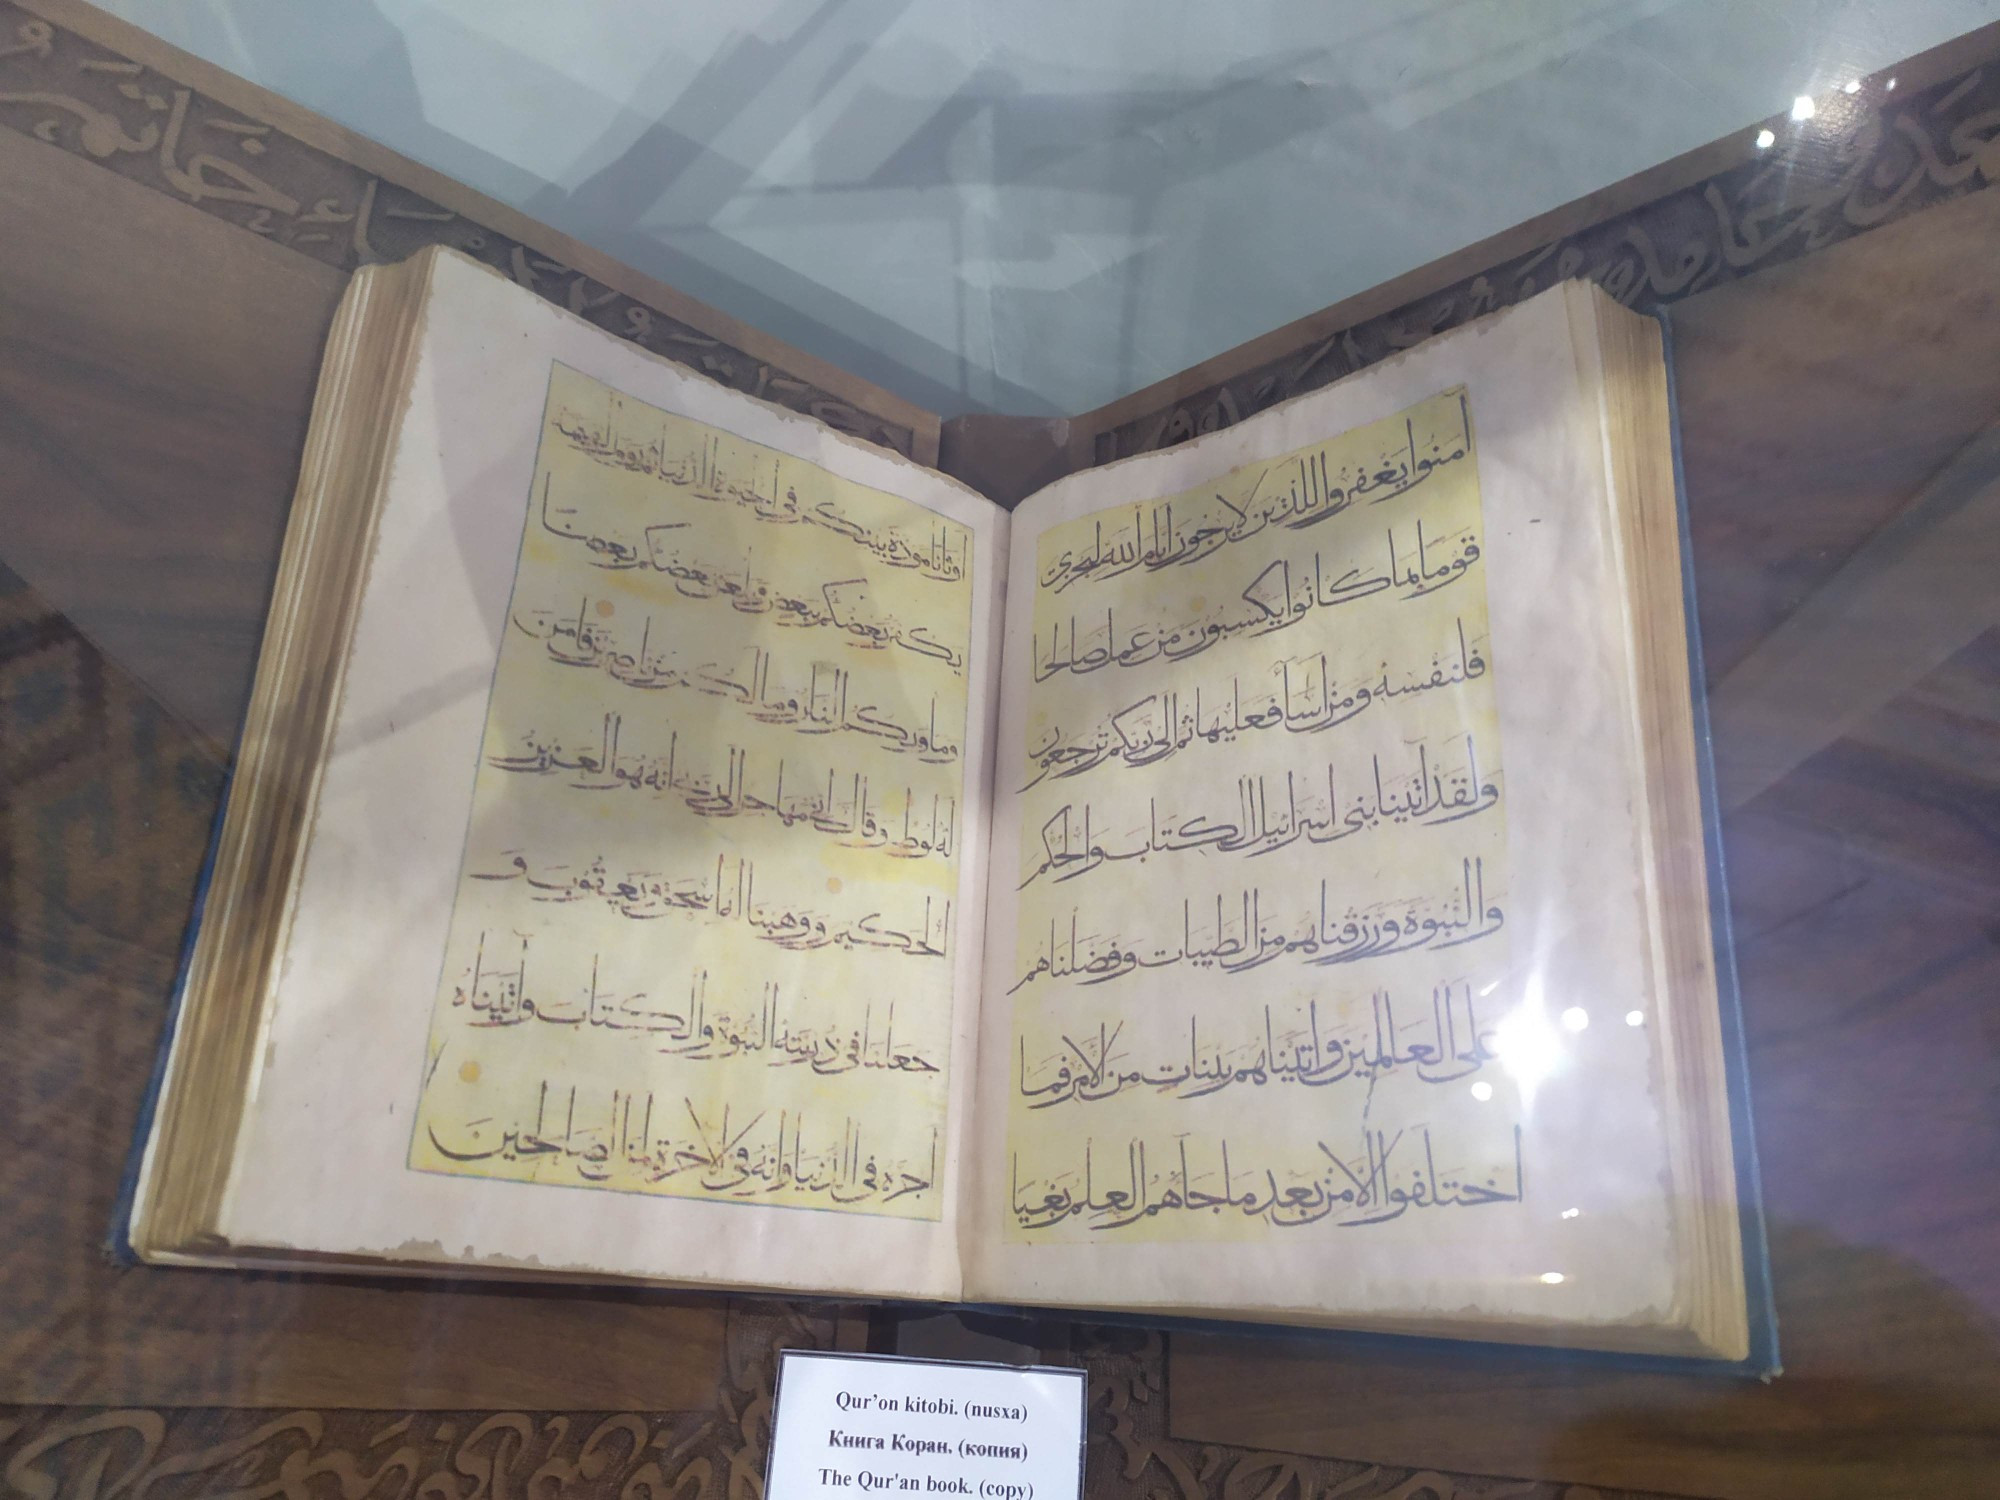 آمنوا يغفروا للذين لا يرجون أيام الله ليجزي
قوما بما كانوا يكسبون من عمل صالحا
فلنفسه ومن أسأ فعليها ثم إلى ربكم ترجعون
ولقد آتينا بني اسرائيل الكتاب والحكم
والنبوة ورزقناهم من الطيبات وفضلناهم
على العالمين وآتيناهم بينات من الأمر فما
اختلفوا إلا من بعد ما جأهم العلم بغيا
أوثانا مودة بينكم في الحيوة الدنيا ثم يوم القيمة
يكفر بعضكم ببعض ويلعن بعضكم بعضا
ومأويكم النار وما لكم من ناصرين فآمن
له لوط وقال إني مهاجر إلى ربي إنه هو العزيز
الحكيم ووهبنا له اسحق ويعقوب و
جعلنا في ذريته النبوة والكتاب وآتيناه
أجره في الدنيا وإنه في الآخرة لمن الصالحين
Qur’on kitobi. (nusxa)
Книга Коран. (копия)
The Qur'an book. (copy)